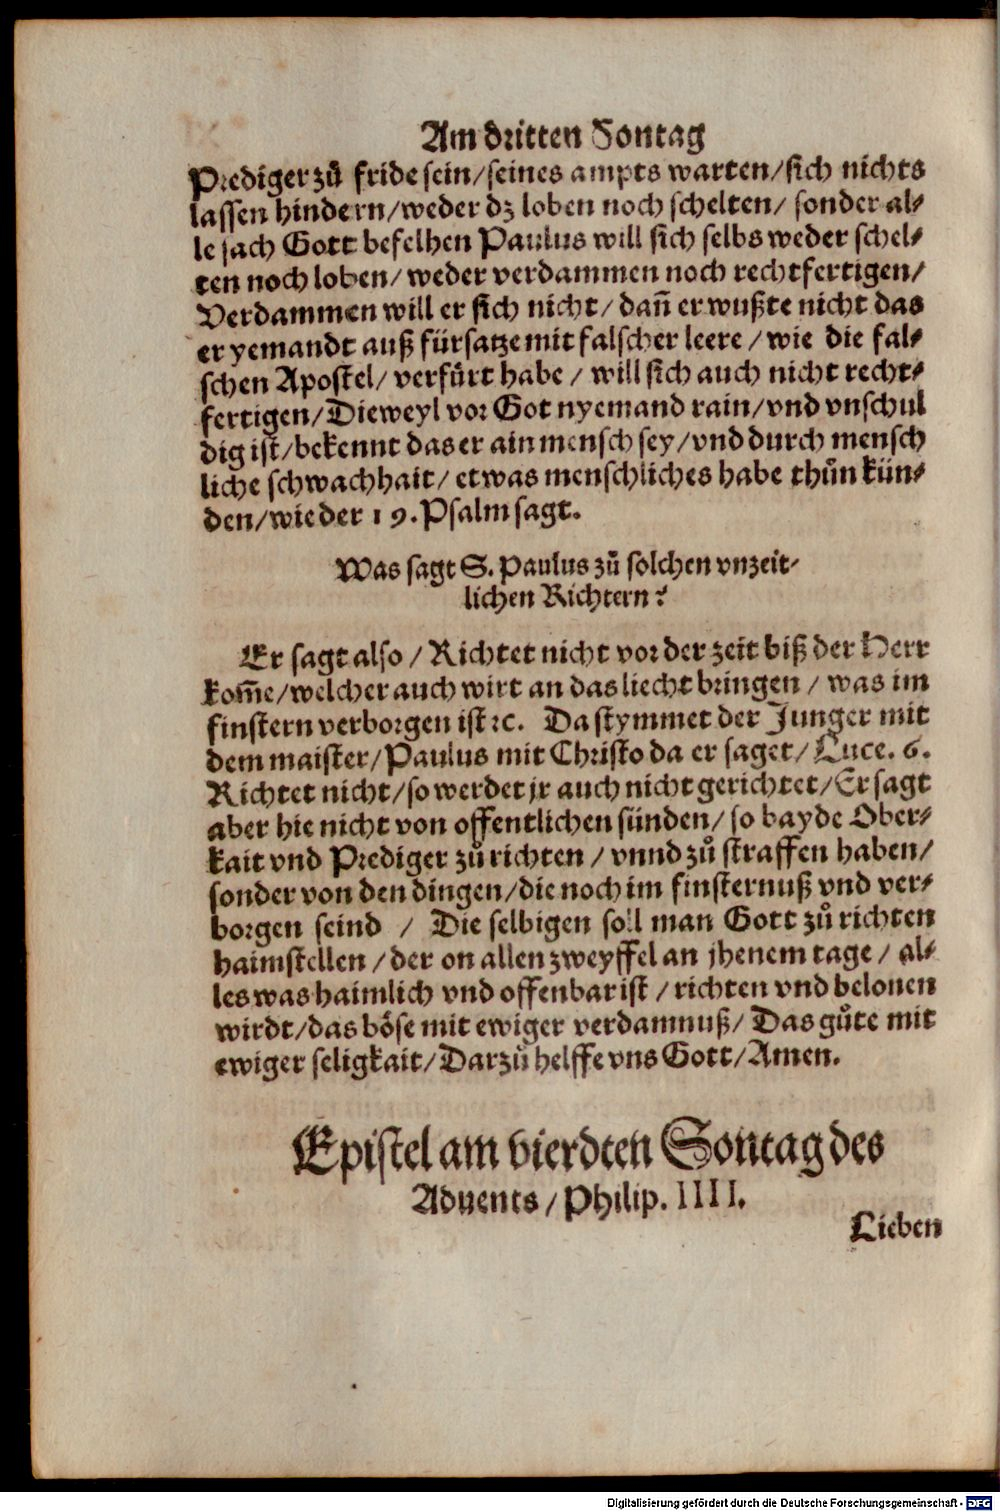 Am dritten Sontag
Prediger zů fride sein/seines ampts warten/sich nichts
lassen hindern/weder dz loben noch schelten/ sonder al⸗
le sach Gott befelhen Paulus will sich selbs weder schel⸗
ten noch loben/ weder verdammen noch rechtfertigen/
Verdammen will er sich nicht/ dañ er wußte nicht das
er yemandt auß fürsatze mit falscher leere/ wie die fal⸗
schen Apostel/ verfürt habe/ will sich auch nicht recht⸗
fertigen/Dieweyl vor Got nyemand rain/vnd vnschul
dig ist/bekennt das er ain mensch sey/vnd durch mensch
liche schwachhait/ etwas menschliches habe thůn kün⸗
den/wie der 19. Psalm sagt.
Was sagt S. Paulus zů solchen vnzeit⸗
lichen Richtern?
Er sagt also/ Richtet nicht vor der zeit biß der Herr
kom̃e/welcher auch wirt an das liecht bringen/ was im
finstern verborgen ist ꝛc. Da stymmet der Junger mit
dem maister/Paulus mit Christo da er saget/ Luce. 6.
Richtet nicht/so werdet jr auch nicht gerichtet/Er sagt
aber hie nicht von offentlichen sünden/ so bayde Ober⸗
kait vnd Prediger zů richten/ vnnd zů straffen haben/
sonder von den dingen/die noch im finsternuß vnd ver⸗
borgen seind / Die selbigen soll man Gott zů richten
haimstellen/der on allen zweyffel an jhenem tage/ al⸗
les was haimlich vnd offenbar ist/ richten vnd belonen
wirdt/das böse mit ewiger verdamnuß/ Das gůte mit
ewiger seligkait/Darzů helffe vns Gott/Amen.
Epistel am vierdten Sontag des
Aduents/Philip. IIII.
Lieben
Digitalisierung gefördert durch die Deutsche Forschungsgemeinschaft - DFG